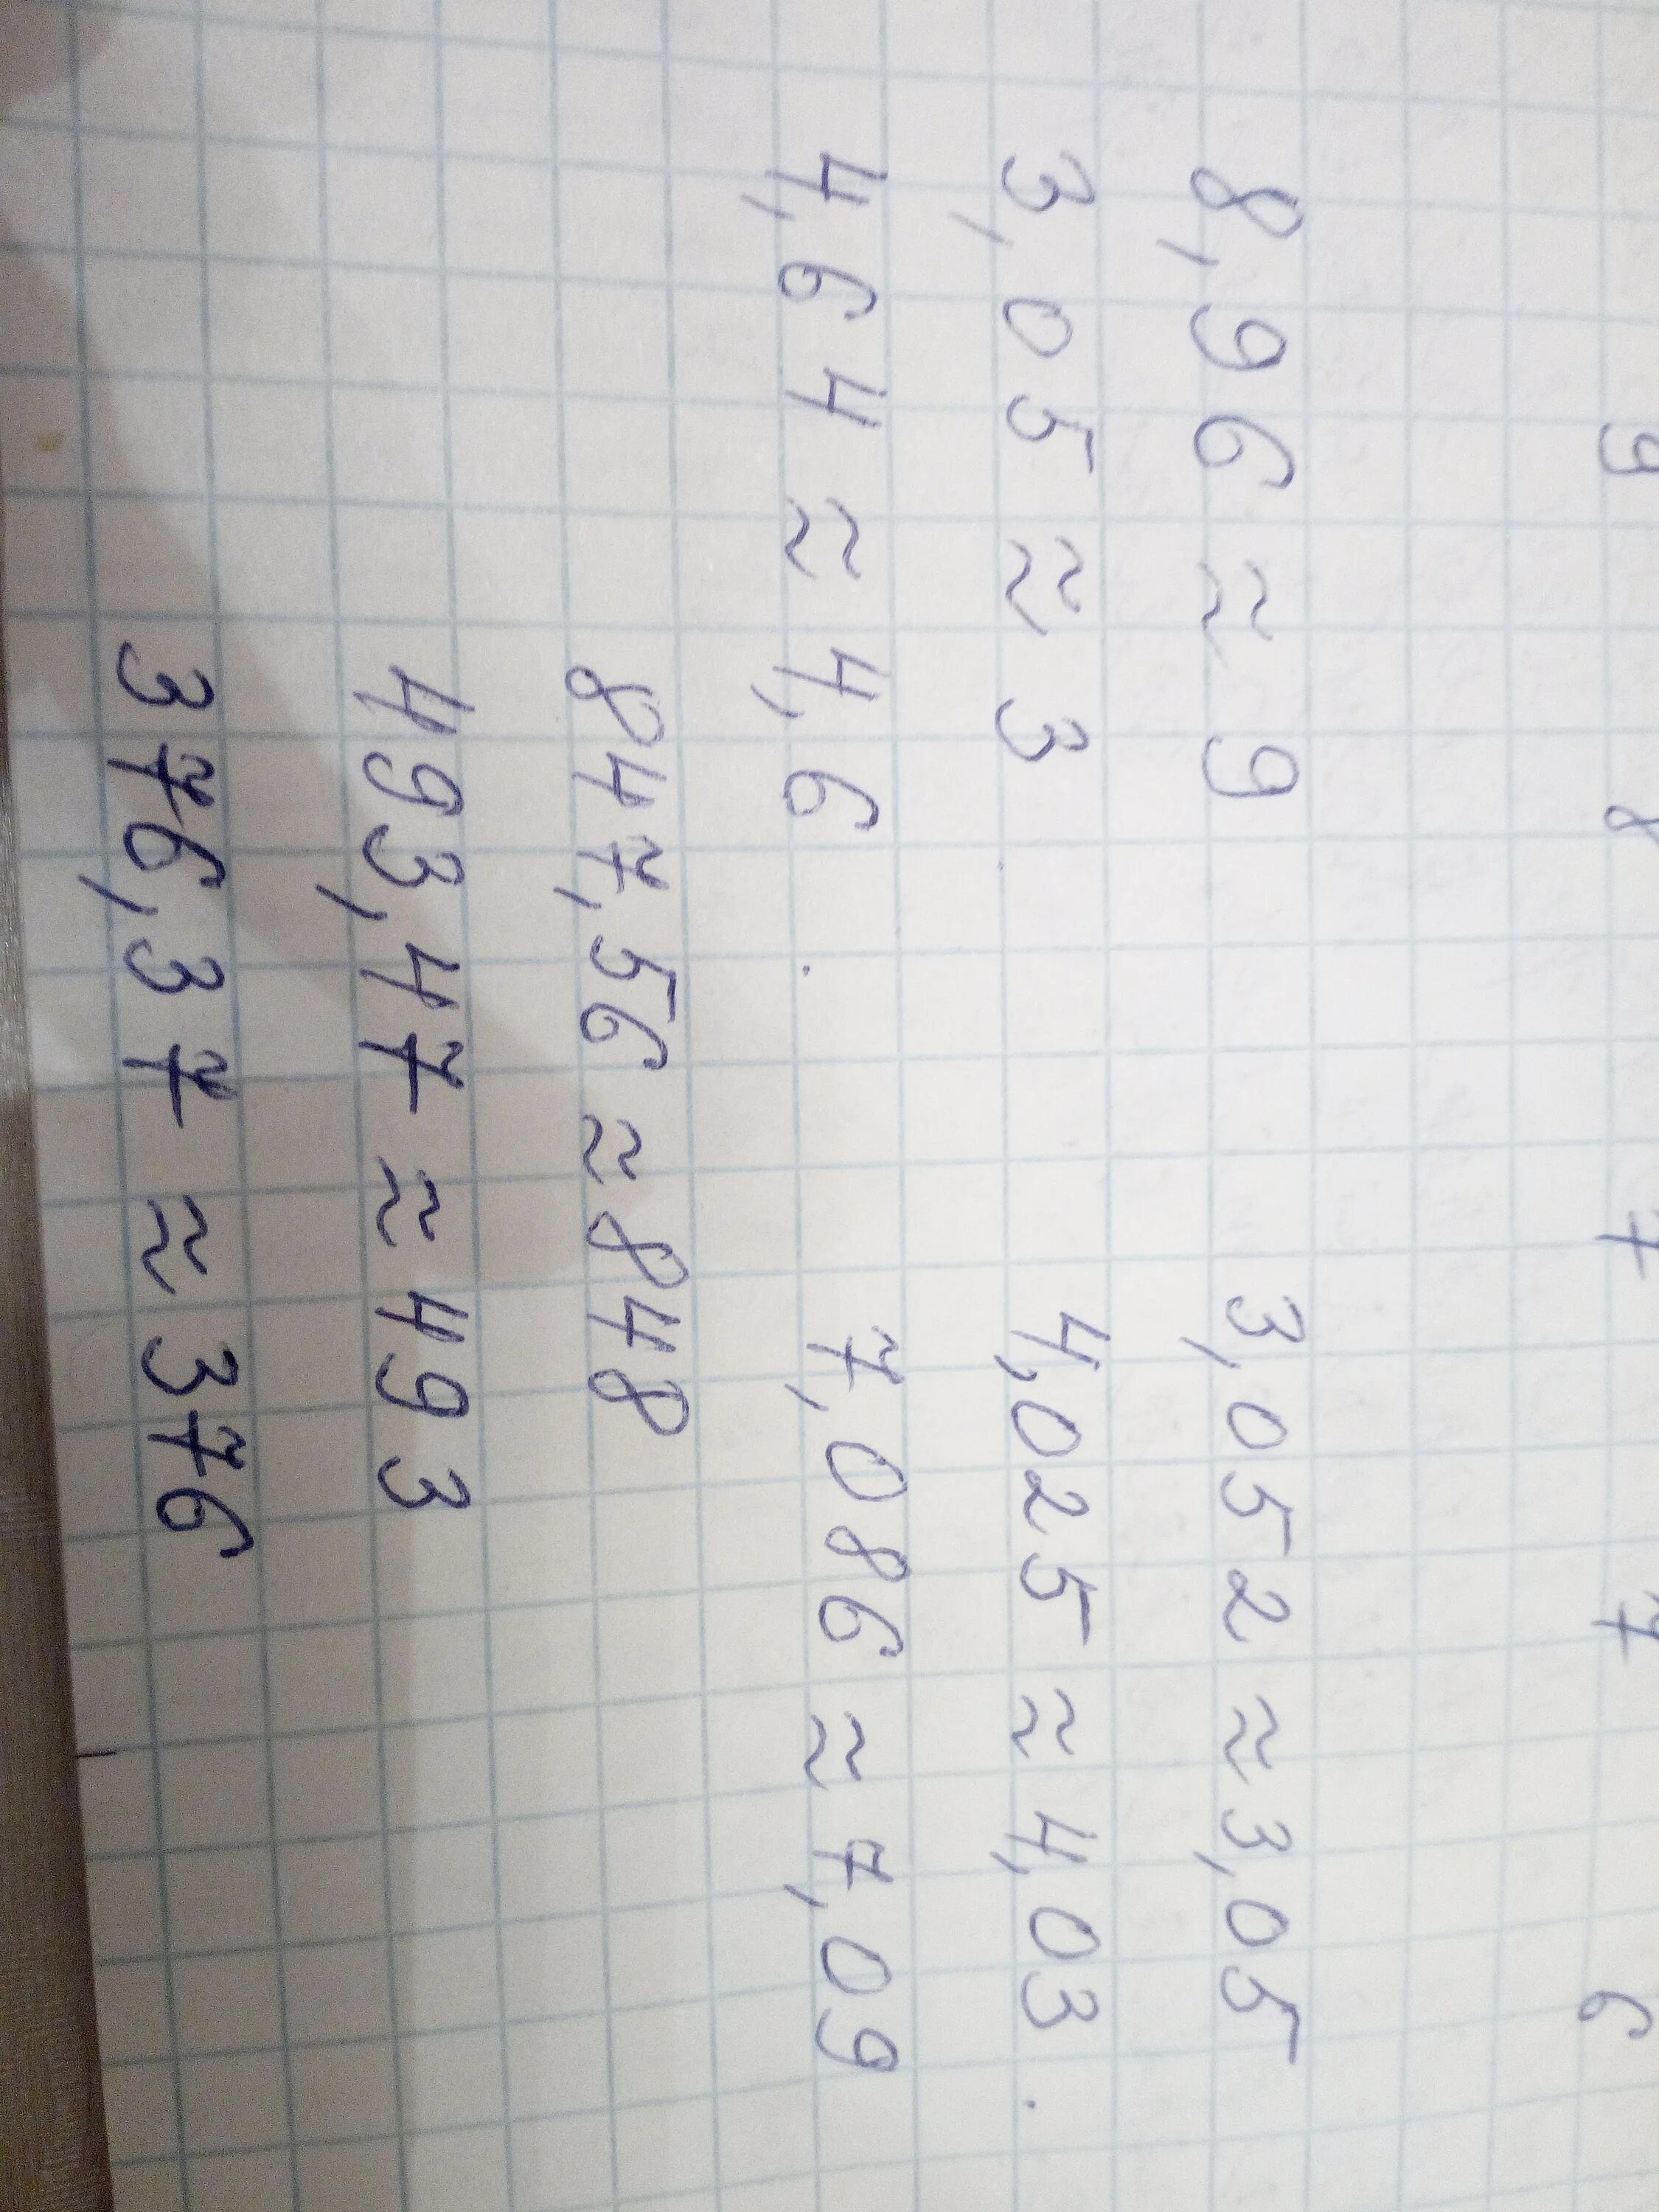 9 8 7 7 6
8,96 ≈ 9 3,052 ≈ 3,05
3,05 ≈ 3 4,025 ≈ 4,03
4,64 ≈ 4,6 7,086 ≈ 7,09
847,56 ≈ 848
493,47 ≈ 493
376,37 ≈ 376